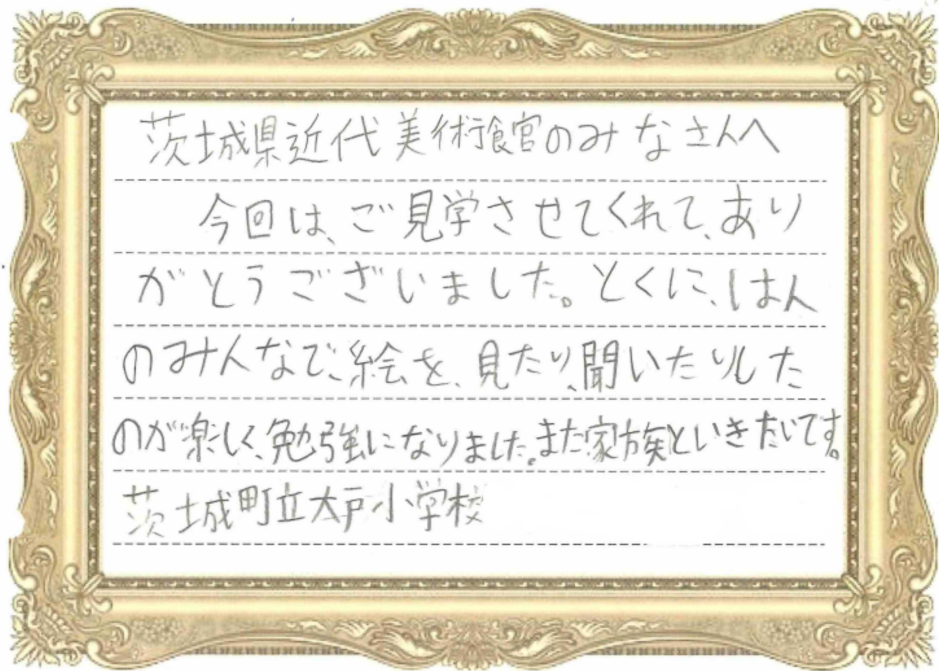 茨城県近代美術館のみなさんへ
今回は、ご見学させてくれて、あり
がとうございました。とくに、はん
のみんなで、絵を、見たり、聞いたりした
のが楽しく、勉強になりました。また家族といきたいです。
茨城町立大戸小学校